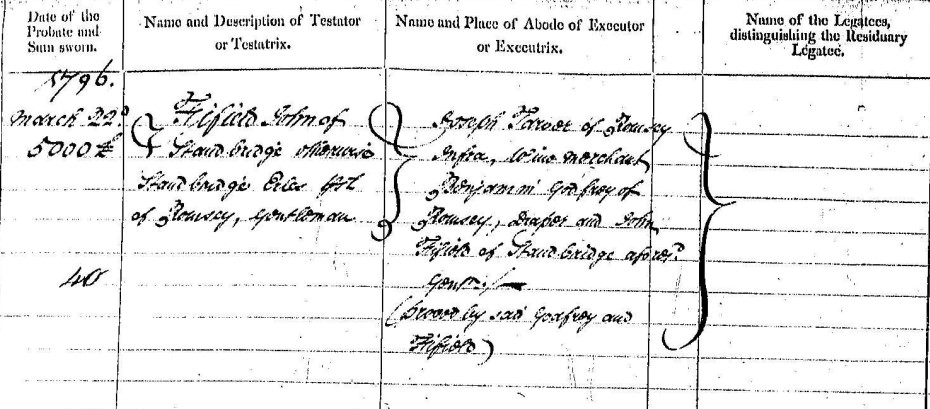 Date of the
Probate and
Sum sworn.
Name and Description of Testator
or Testatrix.
Name and Place of Abode of Executor
or Executrix.
Name of the Legatees,
distinguishing the Residuary
Legatee.
1796.
March 22d
5000£
40
Fifield John of
Standbridge otherwise
Standbridge
of Romsey, Gentleman
Joseph Tarver of Romsey
Infra, Wine merchant
Benjamin Godfrey of
Romsey, Draper and John
Fifield of Standbridge afores.d
Gentn.
(proved by said Godfrey and
Fifield)